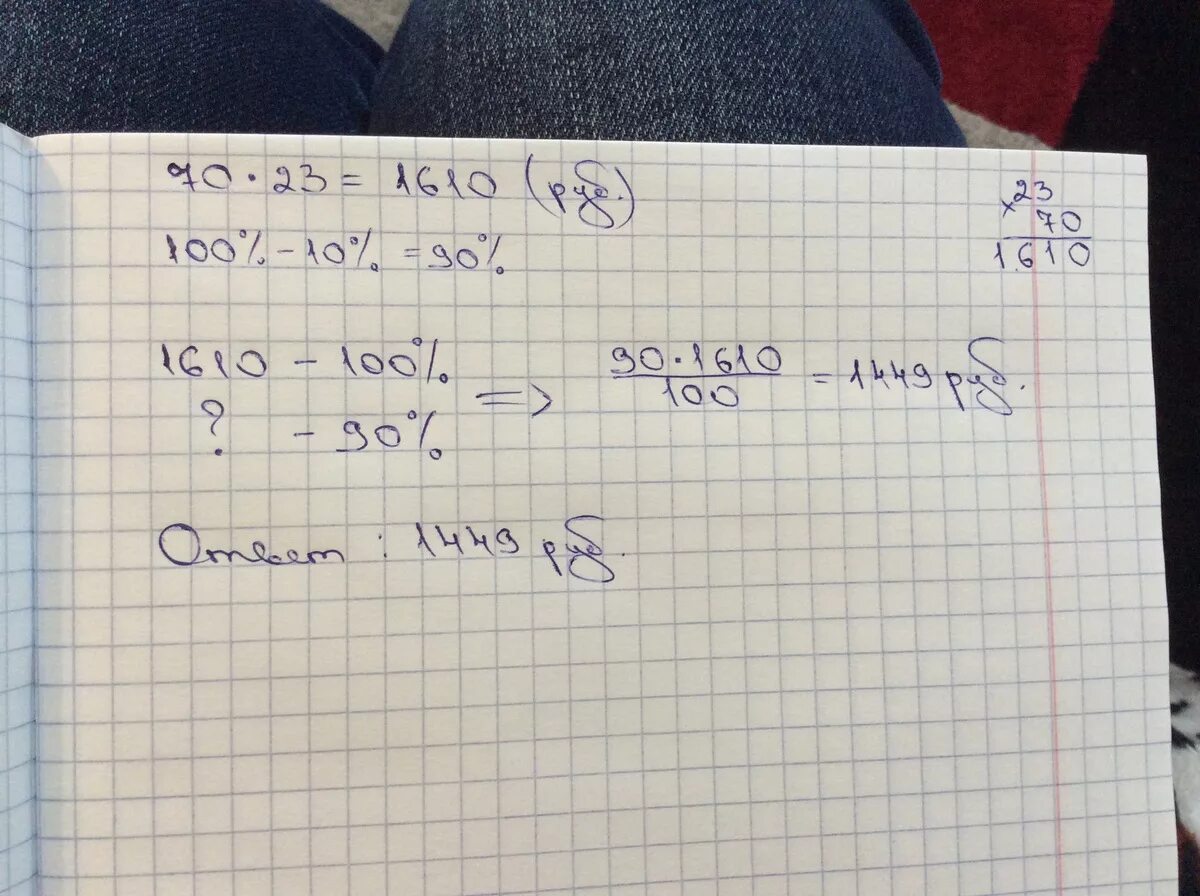 70·23 = 1610 (руб.)
100% - 10% = 90%
×23
70
1610
1610 - 100%
? - 90%
=> 90·1610
100
= 1449 руб.
Ответ: 1449 руб.